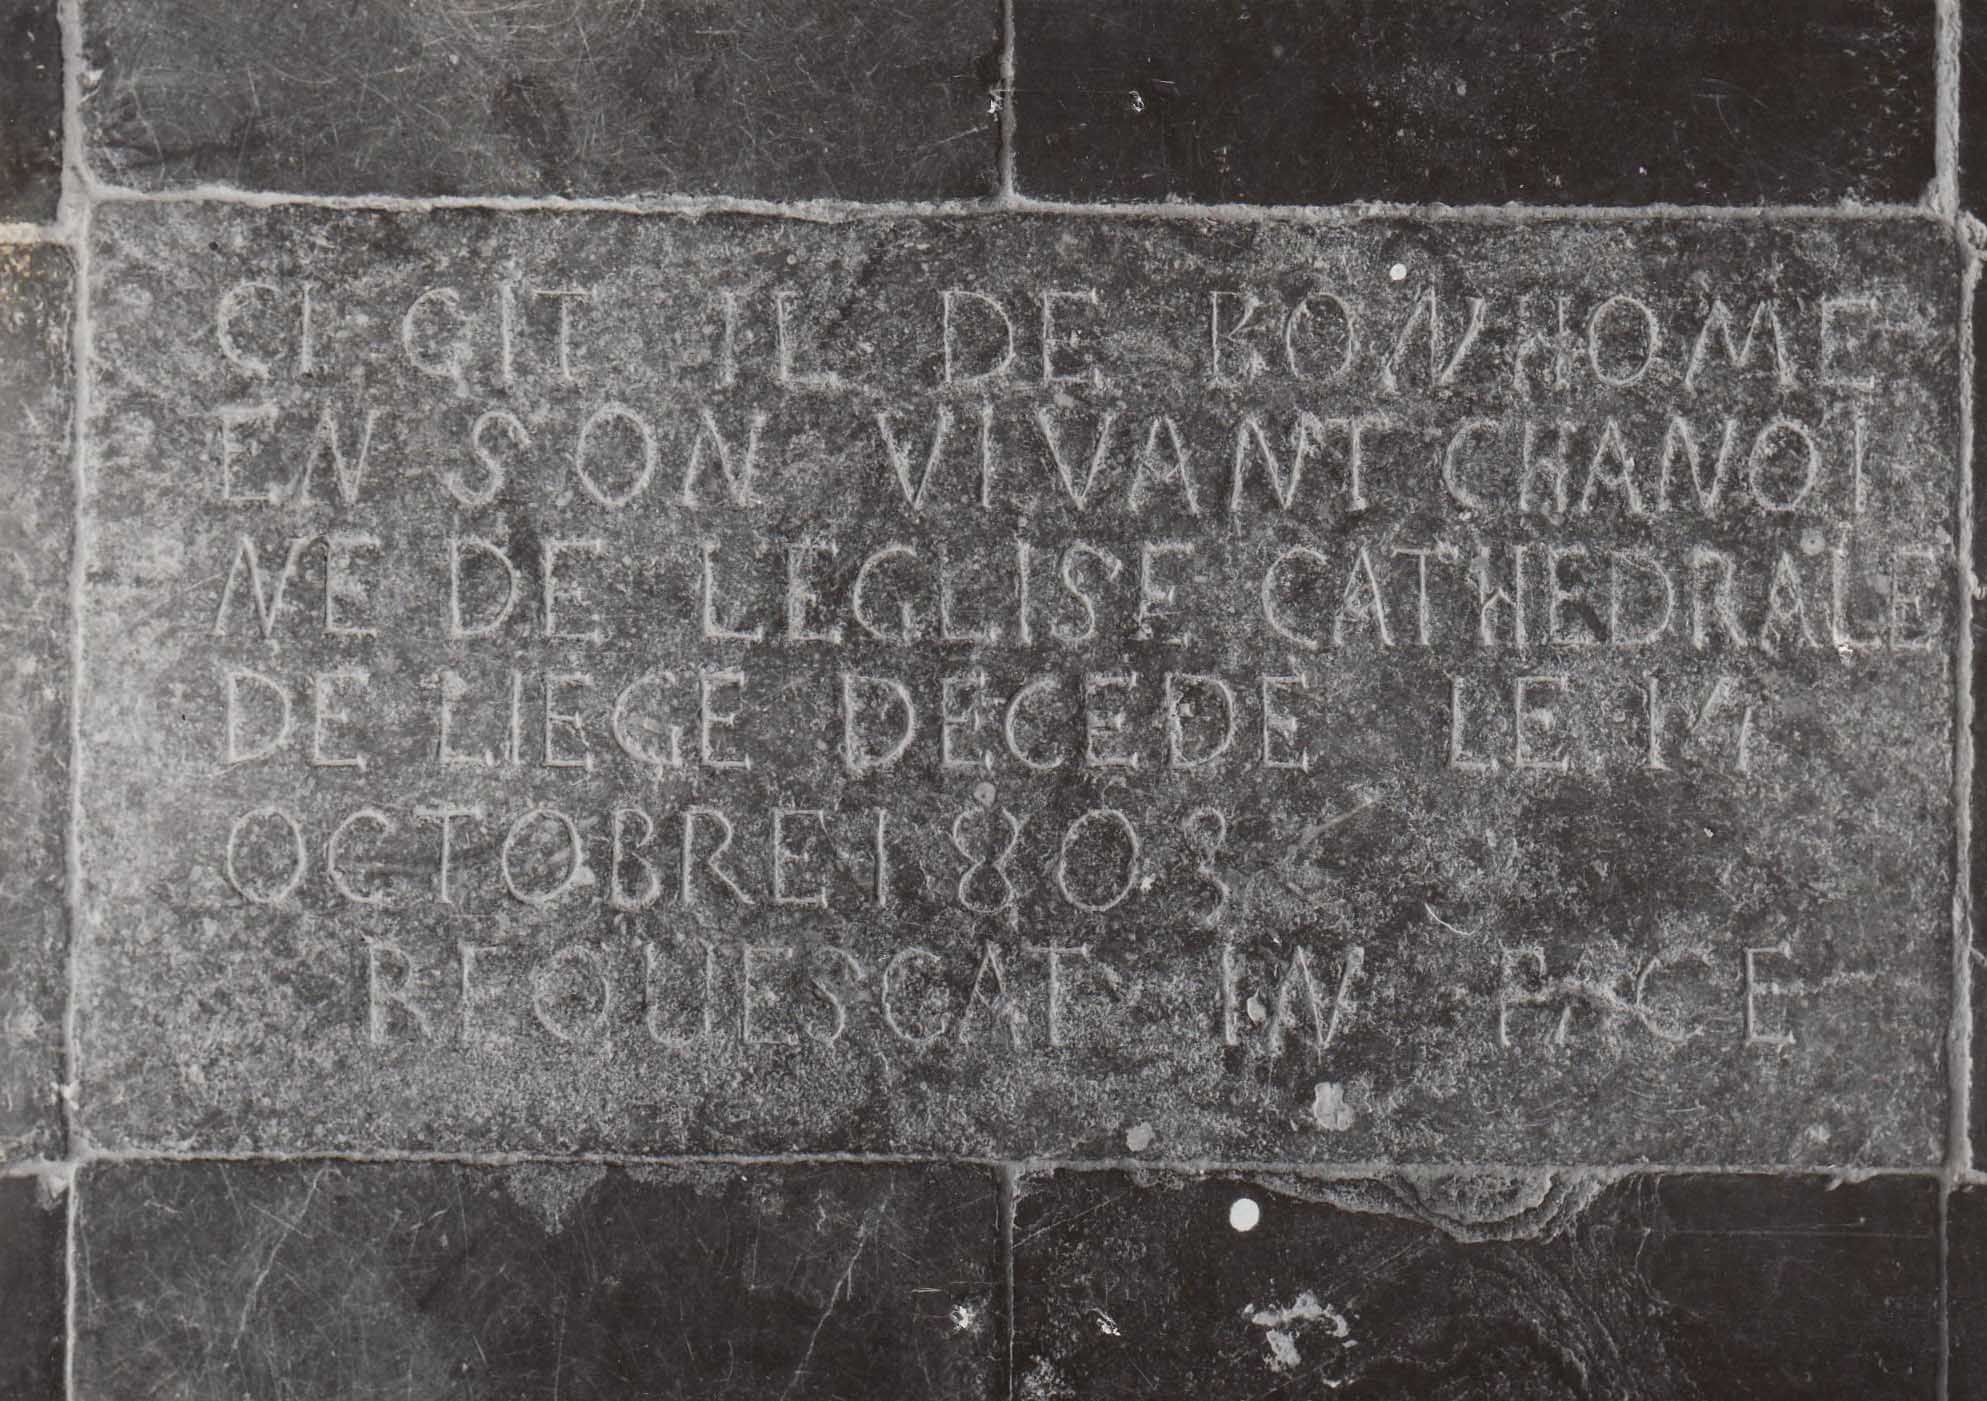 CI GIT IL DE BONHOME
EN SON VIVANT CHANOI
NE DE LEGLISE CATHEDRALE
DE LIEGE DÉCÉDÉ LE 14
OCTOBRE 1803
REQUESCAT IN PACE